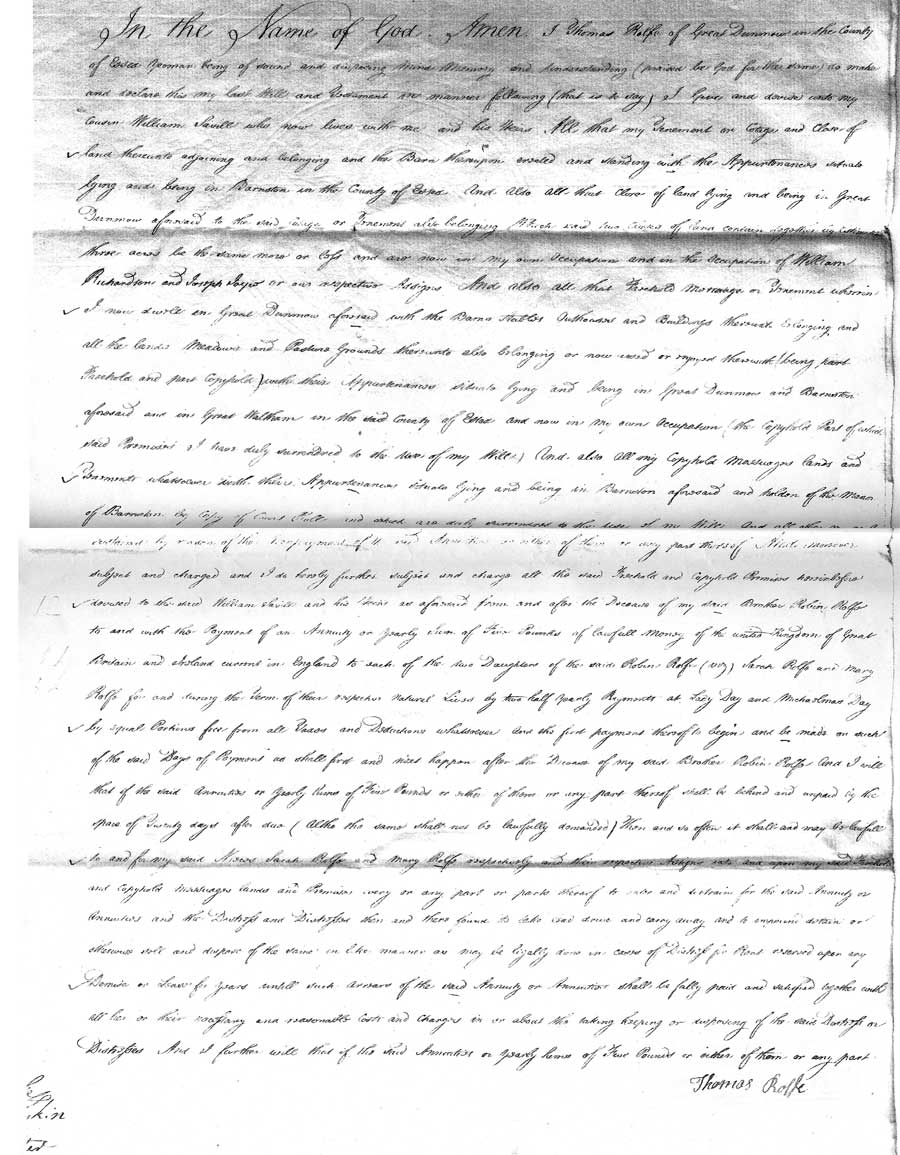 In the Name of God. Amen. I Thomas Rolfe of Great Dunmow in the County
of Essex Yeoman being of sound and disposing Mind Memory and Understanding (praised be God for the same) do make
and declare this my last Will and Testament in manner following (that is to say) I Give and devise unto my
Cousin William Savill who now lives with me and his Heirs All that my Tenement or Cottage and Close of
land thereunto adjoining and belonging and the Barn thereupon erected and standing with the Appurtenances situate
lying and being in Barnston in the County of Essex And also all that Close of land lying and being in Great
Dunmow aforesaid to the said Cottage or Tenement also belonging Which said two Closes of land contain together
three acres be the same more or less and are now in my own Occupation and in the Occupation of William
Richardson and Joseph or our respective Assigns And also all that Freehold Messuage or Tenement wherein
I now dwell in Great Dunmow aforesaid with the Barns Stables Outhouses and Buildings thereunto belonging and
all the lands Meadows and Pasture Grounds thereunto also belonging or now used or enjoyed therewith (being part
Freehold and part Copyhold) with their Appurtenances situate lying and being in Great Dunmow and Barnston
aforesaid and in Great Waltham in the said County of Essex and now in my own Occupation (the Copyhold Part of which
said Premises I have duly surrendered to the use of my Will) And also All my Copyhold Messuages lands and
Tenements whatsoever with their Appurtenances situate lying and being in Barnston aforesaid and holden of the Manor
of Barnston by Copy of Court Roll and which are duly surrendered to the use of my Will And all other
by reason of the Nonpayment of the said Annuities or either of them or any part thereof
subject and charged and I do hereby further subject and charge all the said Freehold and Copyhold Premises hereinbefore
devised to the said William Savill and his Heirs as aforesaid from and after the Decease of my said Brother Robin Rolfe
to and with the Payment of an Annuity or yearly Sum of Five Pounds of lawfull Money of the united Kingdom of Great
Britain and Ireland current in England to each of the two Daughters of the said Robin Rolfe (viz) Sarah Rolfe and Mary
Rolfe for and during the Term of their respective Natural Lives by two half yearly Payments at Lady Day and Michaelmas Day
by equal Portions free from all Taxes and Deductions whatsoever And the first payment thereof to begin and be made on such
of the said Days of Payment as shall first and next happen after the Decease of my said Brother Robin Rolfe And I will
that if the said Annuities or yearly Sums of Five Pounds or either of them or any part thereof shall be behind and unpaid by the
space of Twenty days after due (Altho the same shall not be lawfully demanded) Then and so often it shall and may be lawfull
to and for my said Nieces Sarah Rolfe and Mary Rolfe respectively and their respective Assigns into and upon my said Freehold
and Copyhold Messuages lands and Premises every or any part or parts thereof to enter and distrain for the said Annuity or
Annuities and the Distress and Distresses then and there found to take lead drive and carry away and to impound detain or
otherwise sell and dispose of the same in like manner as may be legally done in cases of Distress for Rent reserved upon any
Demise or Lease for years untill such arrears of the said Annuity or Annuities shall be fully paid and satisfied together with
all her or their necessary and reasonable Costs and Charges in or about the taking keeping or disposing of the said Distress or
Distresses And I further will that if the said Annuities or yearly Sums of Five Pounds or either of them or any part
Thomas Rolfe